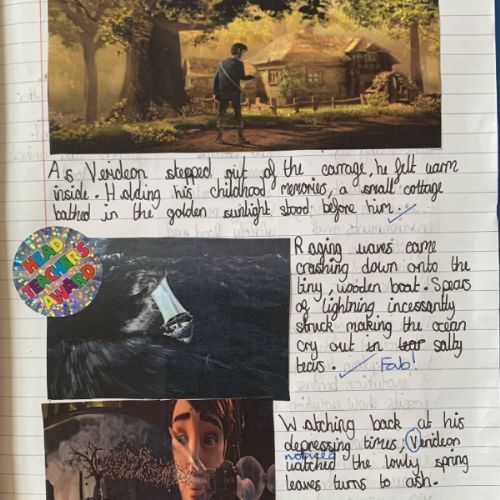 As Verideon stepped out of the carrage, he felt warm
inside. Holding his childhood memories, a small cottage
bathed in the golden sunlight stood before him.
HEAD
TEACHER'S
AWARD
Raging waves came
crashing down onto the
tiny, wooden boat. Spears
of lightning incessantly
struck making the ocean
cry out in tear salty
tears. Fab!
Watching back at his
depressing times, Verideon
noticed
watched the lowly spring
leaves turns to ash.